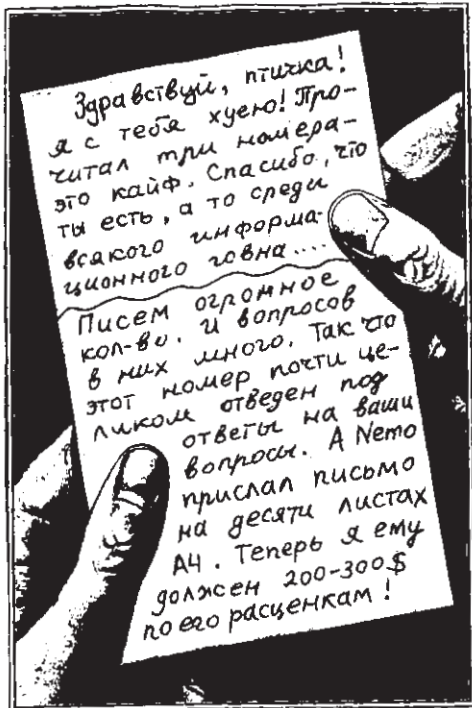 Здравствуй, птичка!
я с тебя хуею! Про-
читал три номера-
это кайф. Спасибо, что
ты есть, а то среди
всякого информа-
ционного говна....
Писем огромное
кол-во. И вопросов
в них много. Так что
этот номер почти це-
ликом отведен под
ответы на ваши
вопросы. А Nemo
прислал письмо
на десяти листах
А4. Теперь я ему
должен 200-300$
по его расценкам!